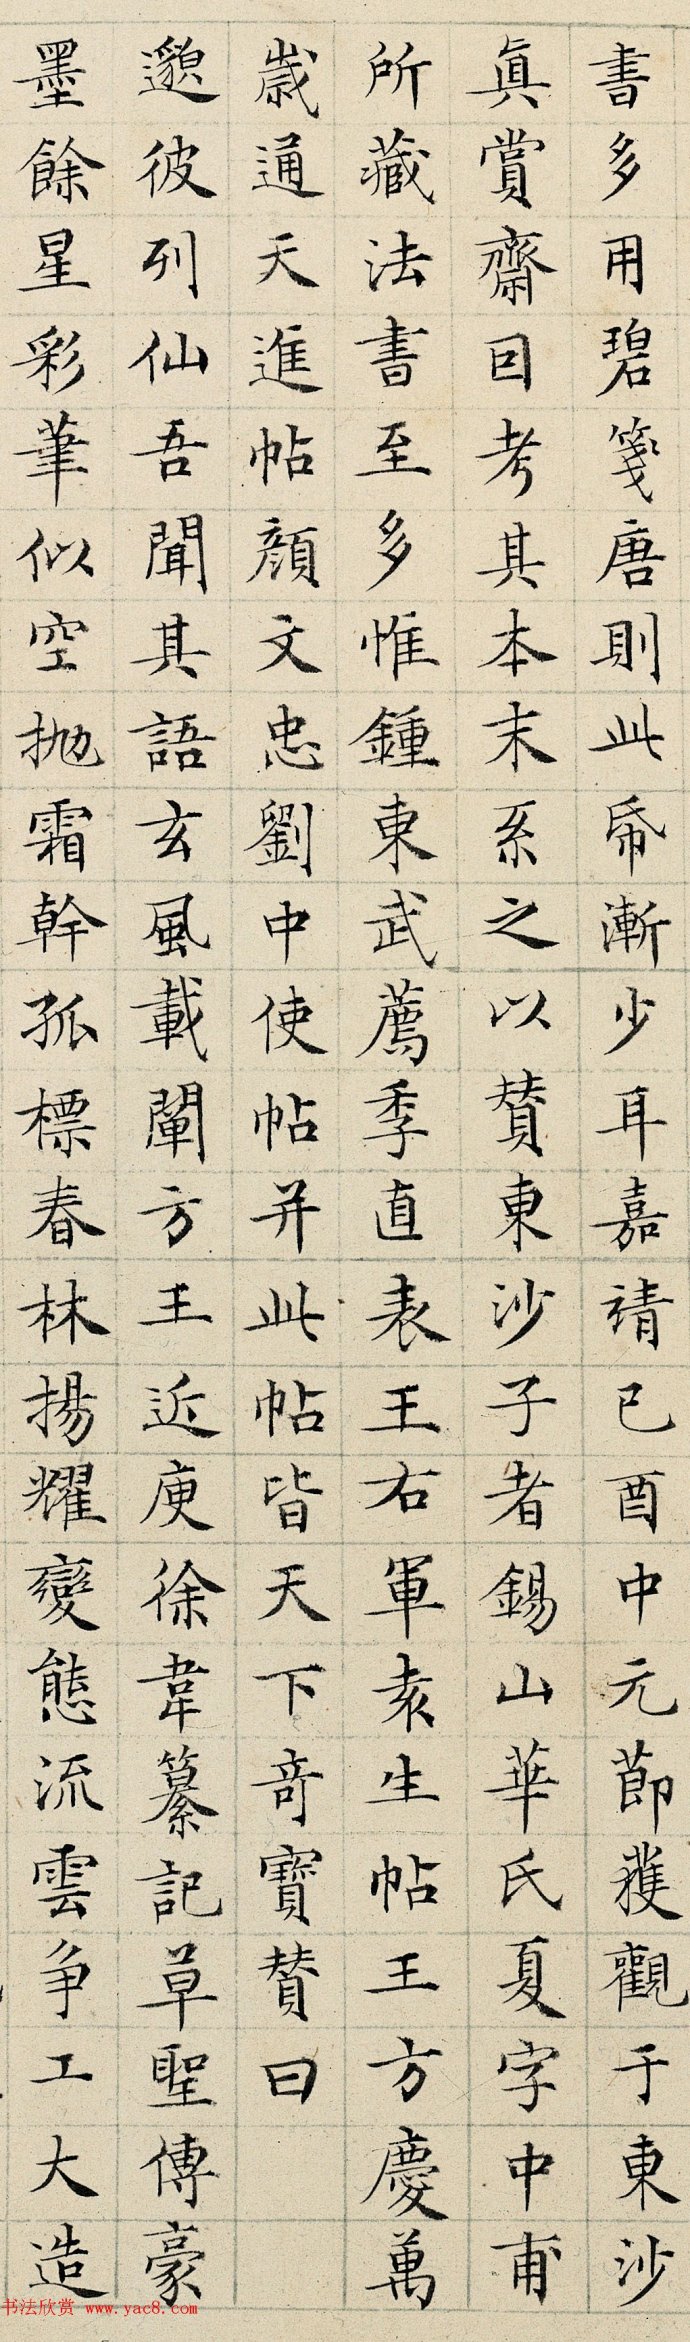 書多用碧箋唐則此帋漸少耳嘉靖已酉中元節獲觀于東沙
眞賞齋因考其本末系之以賛東沙子者錫山華氏夏字中甫
所藏法書至多惟鍾東武薦季直表王右軍袁生帖王方慶萬
嵗通天進帖顔文忠劉中使帖并此帖皆天下竒寳賛曰
邈彼列仙吾聞其語玄風載闡方王近庾徐韋纂記草聖傳豪
墨餘星彩筆似空拋霜幹孤標春林揚耀變態流雲争工大造
书法欣赏 www.yac8.com